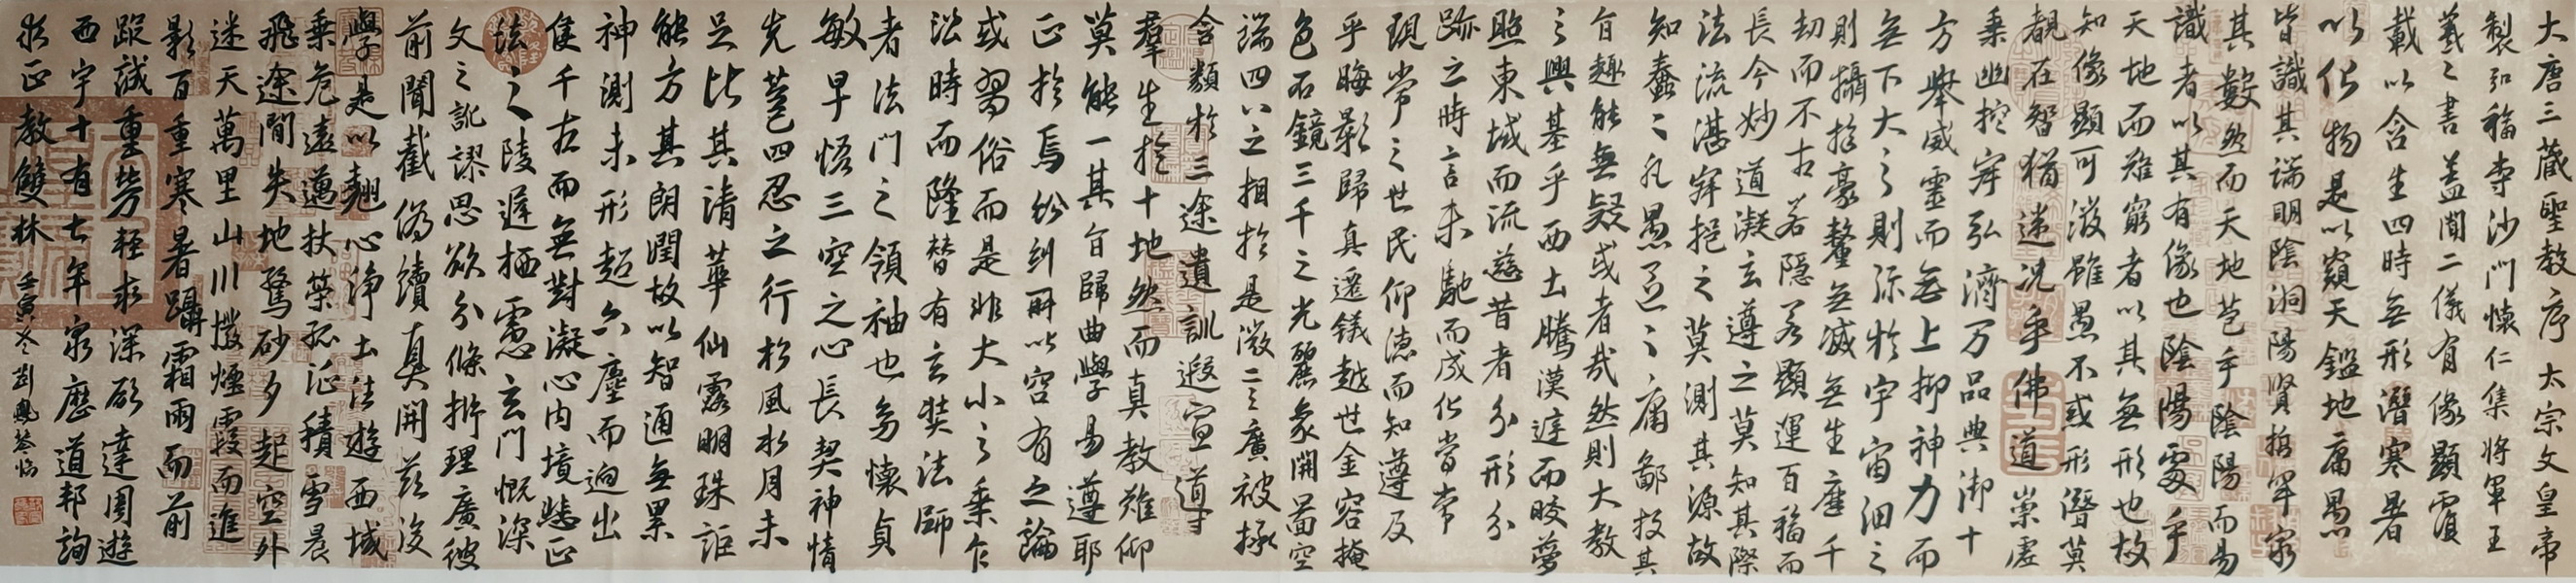 大唐三藏聖教序 太宗文皇帝
製弘福寺沙門懷仁集將軍王
羲之書蓋聞二儀有像顯覆
載以含生四時無形潛寒暑
以化物是以窺天鑑地庸愚
皆識其端明陰洞陽賢哲罕窮
其數然而天地苞乎陰陽而易
識者以其有像也陰陽處乎
天地而難窮者以其無形也故
知像顯可徵雖愚不或形潛莫
覩在智猶迷況乎佛道崇虛
乘幽控寂弘濟万品典御十
方舉威靈而無上抑神力而
無下大之則彌於宇宙細之
則攝於豪釐無滅無生歷千
劫而不古若隱若顯運百福而
長今妙道凝玄遵之莫知其際
法流湛寂挹之莫測其源故
知蠢々凡愚區々庸鄙投其
旨趣能無疑或者哉然則大教
之興基乎西土騰漢庭而皎夢
照東域而流慈昔者分形分
跡之時言未馳而成化當常
現常之世民仰德而知遵及
乎晦影歸真遷儀越世金容掩
色不鏡三千之光麗象開圖空
端四八之相於是微言廣被拯
含類於三途遺訓遐宣導
羣生於十地然而真教難仰
莫能一其旨歸曲學易遵耶
正於焉紛糾所以空有之論
或習俗而是非大小之乘乍
沿時而隆替有玄奘法師
者法門之領袖也幼懷貞
敏早悟三空之心長契神情
先苞四忍之行松風水月未
足比其清華仙露明珠詎
能方其朗潤故以智通無累
神測未形超六塵而迥出
隻千古而無對凝心內境悲正
法之陵遲栖慮玄門慨深
文之訛謬思欲分條析理廣彼
前聞截偽續真開茲後
學是以翹心淨土法遊西域
乘危遠邁杖策孤征積雪晨
飛途間失地驚砂夕起空外
迷天萬里山川撥煙霞而進
影百重寒暑躡霜雨而前
蹤誠重勞輕求深願達周遊
西宇十有七年窮歷道邦詢
求正教雙林 壬寅冬劉鳳琴臨